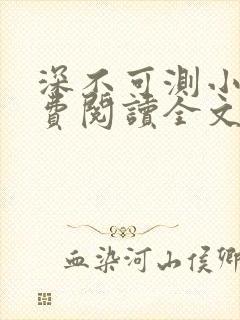 深不可測小
費閱讀全文
血染河山侯卿